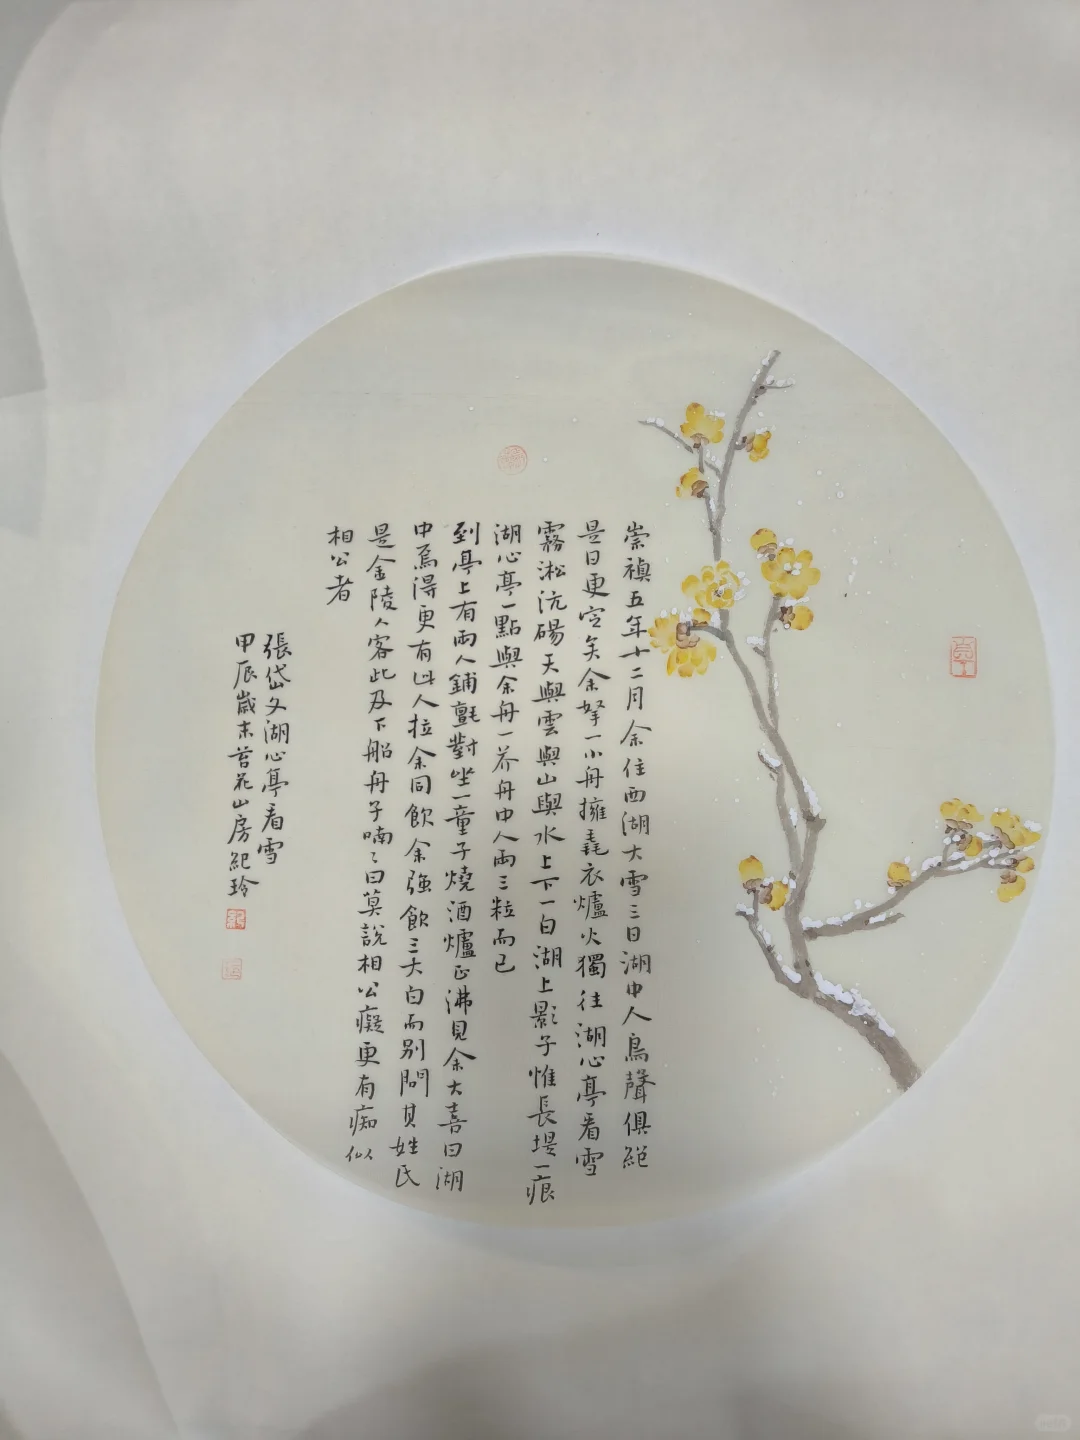 崇禎五年十二月余住西湖大雪三日湖中人鳥聲俱絕
是日更定矣余拏一小舟擁毳衣爐火獨往湖心亭看雪
霧淞沆碭天與雲與山與水上下一白湖上影子惟長堤一痕
湖心亭一點與余舟一芥舟中人兩三粒而已
到亭上有兩人鋪氈對坐一童子燒酒爐正沸見余大喜曰湖
中焉得更有此人拉余同飲余強飲三大白而別問其姓氏
是金陵人客此及下船舟子喃〻曰莫說相公癡更有痴似
相公者
張岱文湖心亭看雪
甲辰歲末苔花山房紀玲